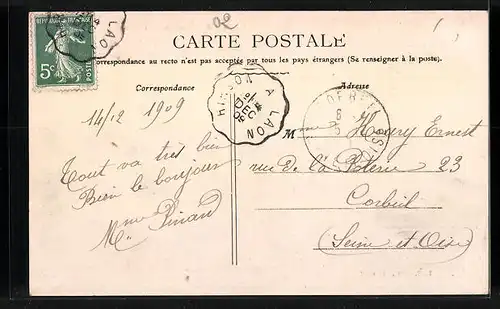 02
LAON
5c
CARTE POSTALE
Correspondance au recto n'est pas acceptée par tous les pays étrangers (Se renseigner à la poste).
Correspondance
Adresse
HIRSON A LAON
14/12 1909
Mme Houry Ernest
Tout va très bien
rue de la Poterie 23
Bien le bonjour
Corbeil
Mme Pinard
(Seine et Oise)